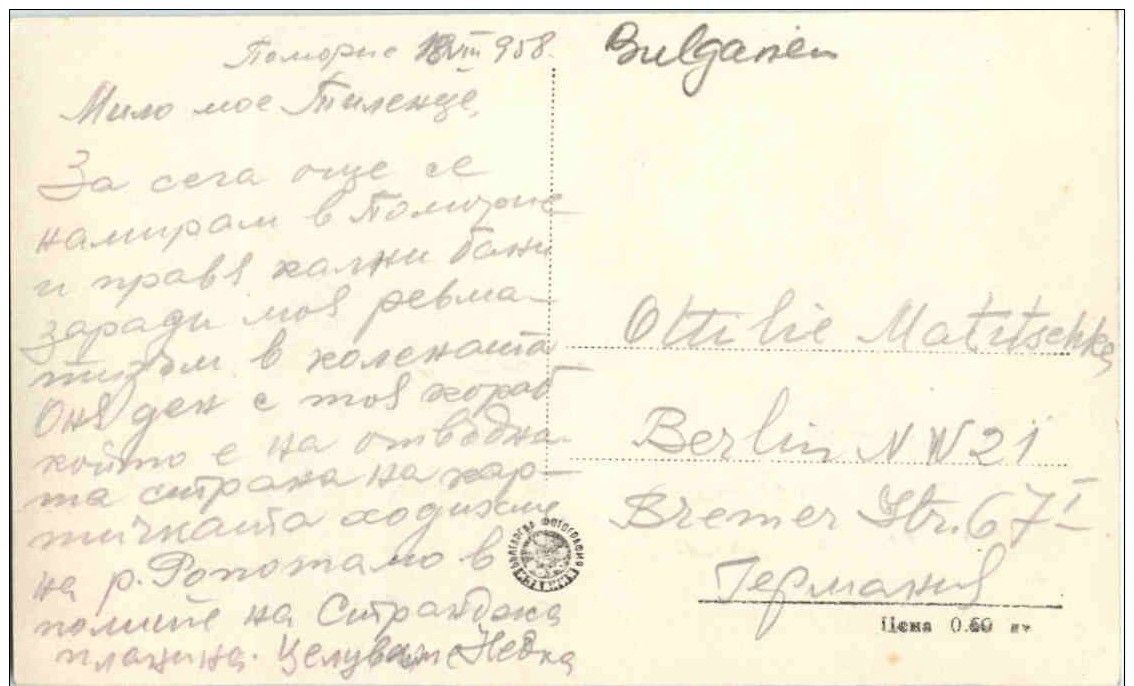 Поморие 18 VIII 958.
Мило мое Тиленце,
За сега още се
намирам в Поморие
и правя кални бани
заради моя ревма-
тизъм в колената
Оня ден с тоя кораб
който е на отвъдна-
та страна на кар-
тичката ходихме
на р. Ропотамо в
полите на Странджа
планина. Целувам Недка
Bulgarien
Ottilie Matutschka
Berlin NW 21
Bremer Str. 67 I
Германия
Цена 0.60 лв